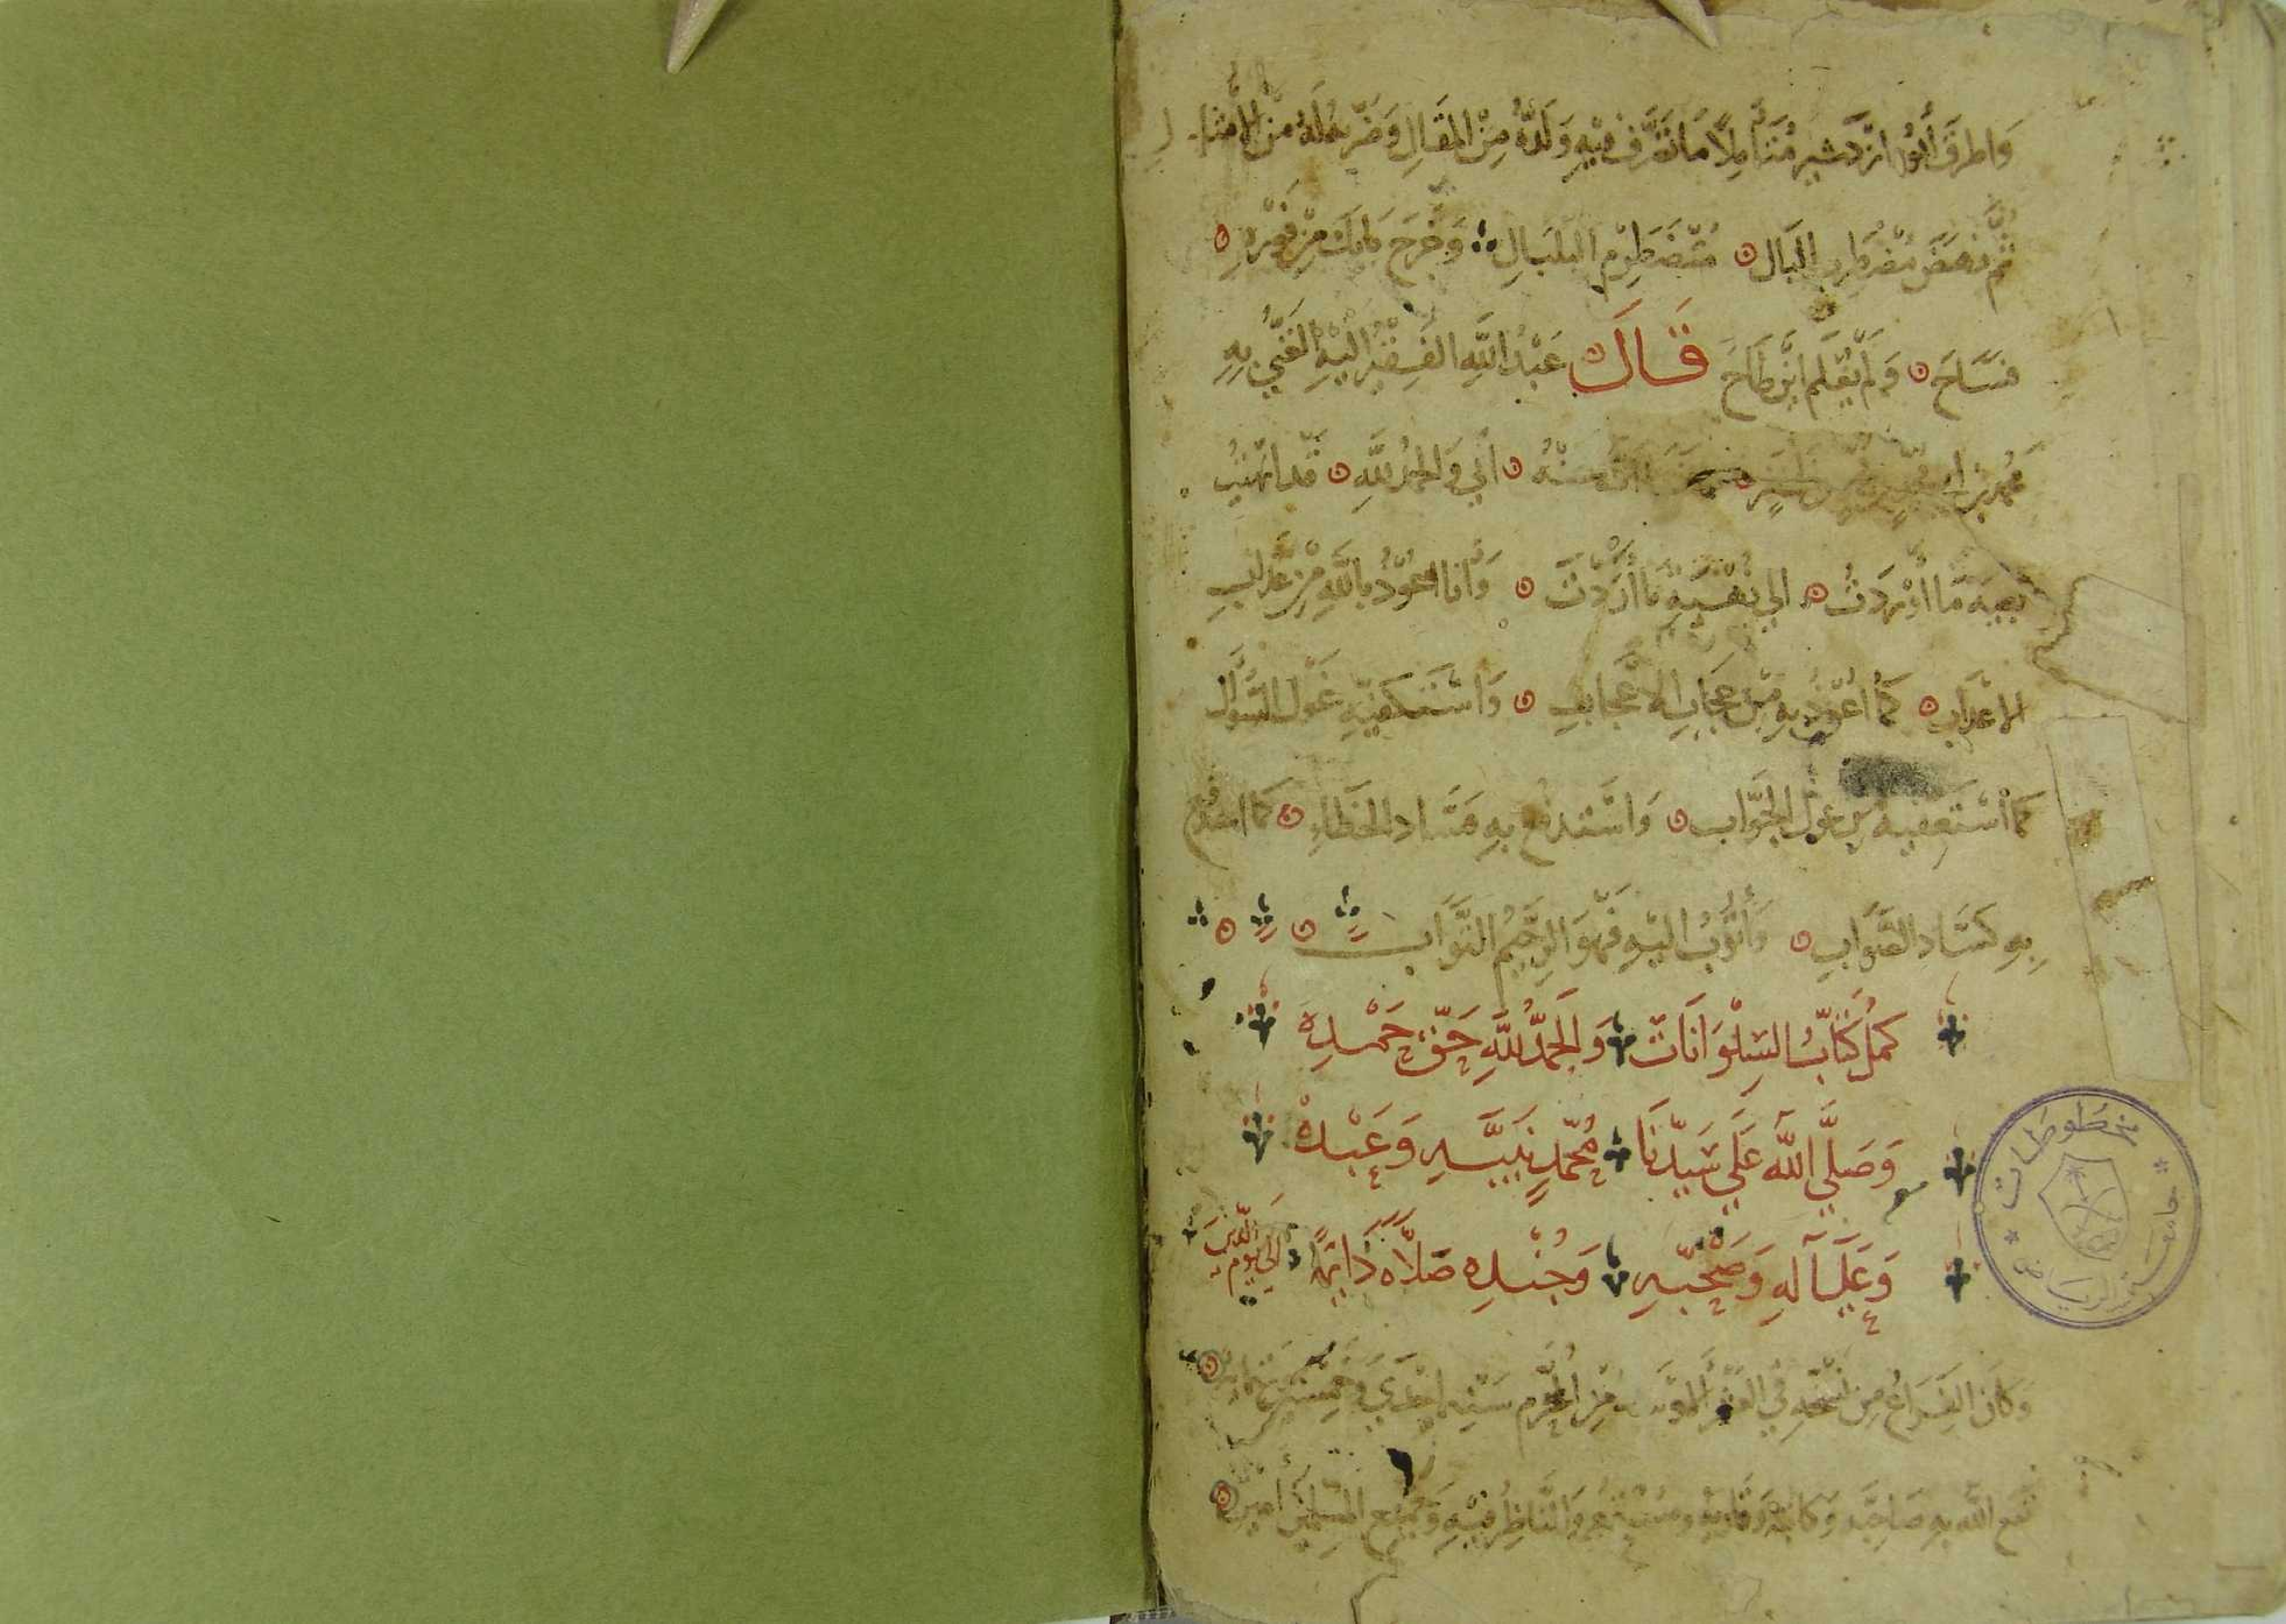 واطرق أبو ازدشير متأملا ما تصرف فيه ولده من المقال وضربه له من الأمثال
ثم نهض مضطرب البال مضطرم البلبال وخرج بابك من قصره
فساح ولم يعلم اين طاح قال عبد الله الفقير اليه الغني به
محمد بن اني والحمد لله قد انهيت
بغية ما أوردت الي نفسية ما أردت وانا اعوذ بالله من عذاب
الاعذاب كما اعوذ به من عجاب الاعجاب واستكفيه غول السؤال
كما استعفيه من عول الجواب واستدفع به متساد الخطاء كما استدفع
به كساد الصواب وأتوب اليه فهو الرحيم التواب
كمل كتاب السلوانات والحمد لله حق حمده
وصلي الله علي سيدنا محمد نبيه وعبده
وعلي آله وصحبه وجنده صلاة دايمة الي يوم الدين
وكان الفراغ من نسخه في العشر من المحرم سنة احدي وخمسين
نفع الله به صاحبه وكاتبه وقاريه والناظر فيه وجميع المسلمين أمين
مخطوطات
جامعة الرياض